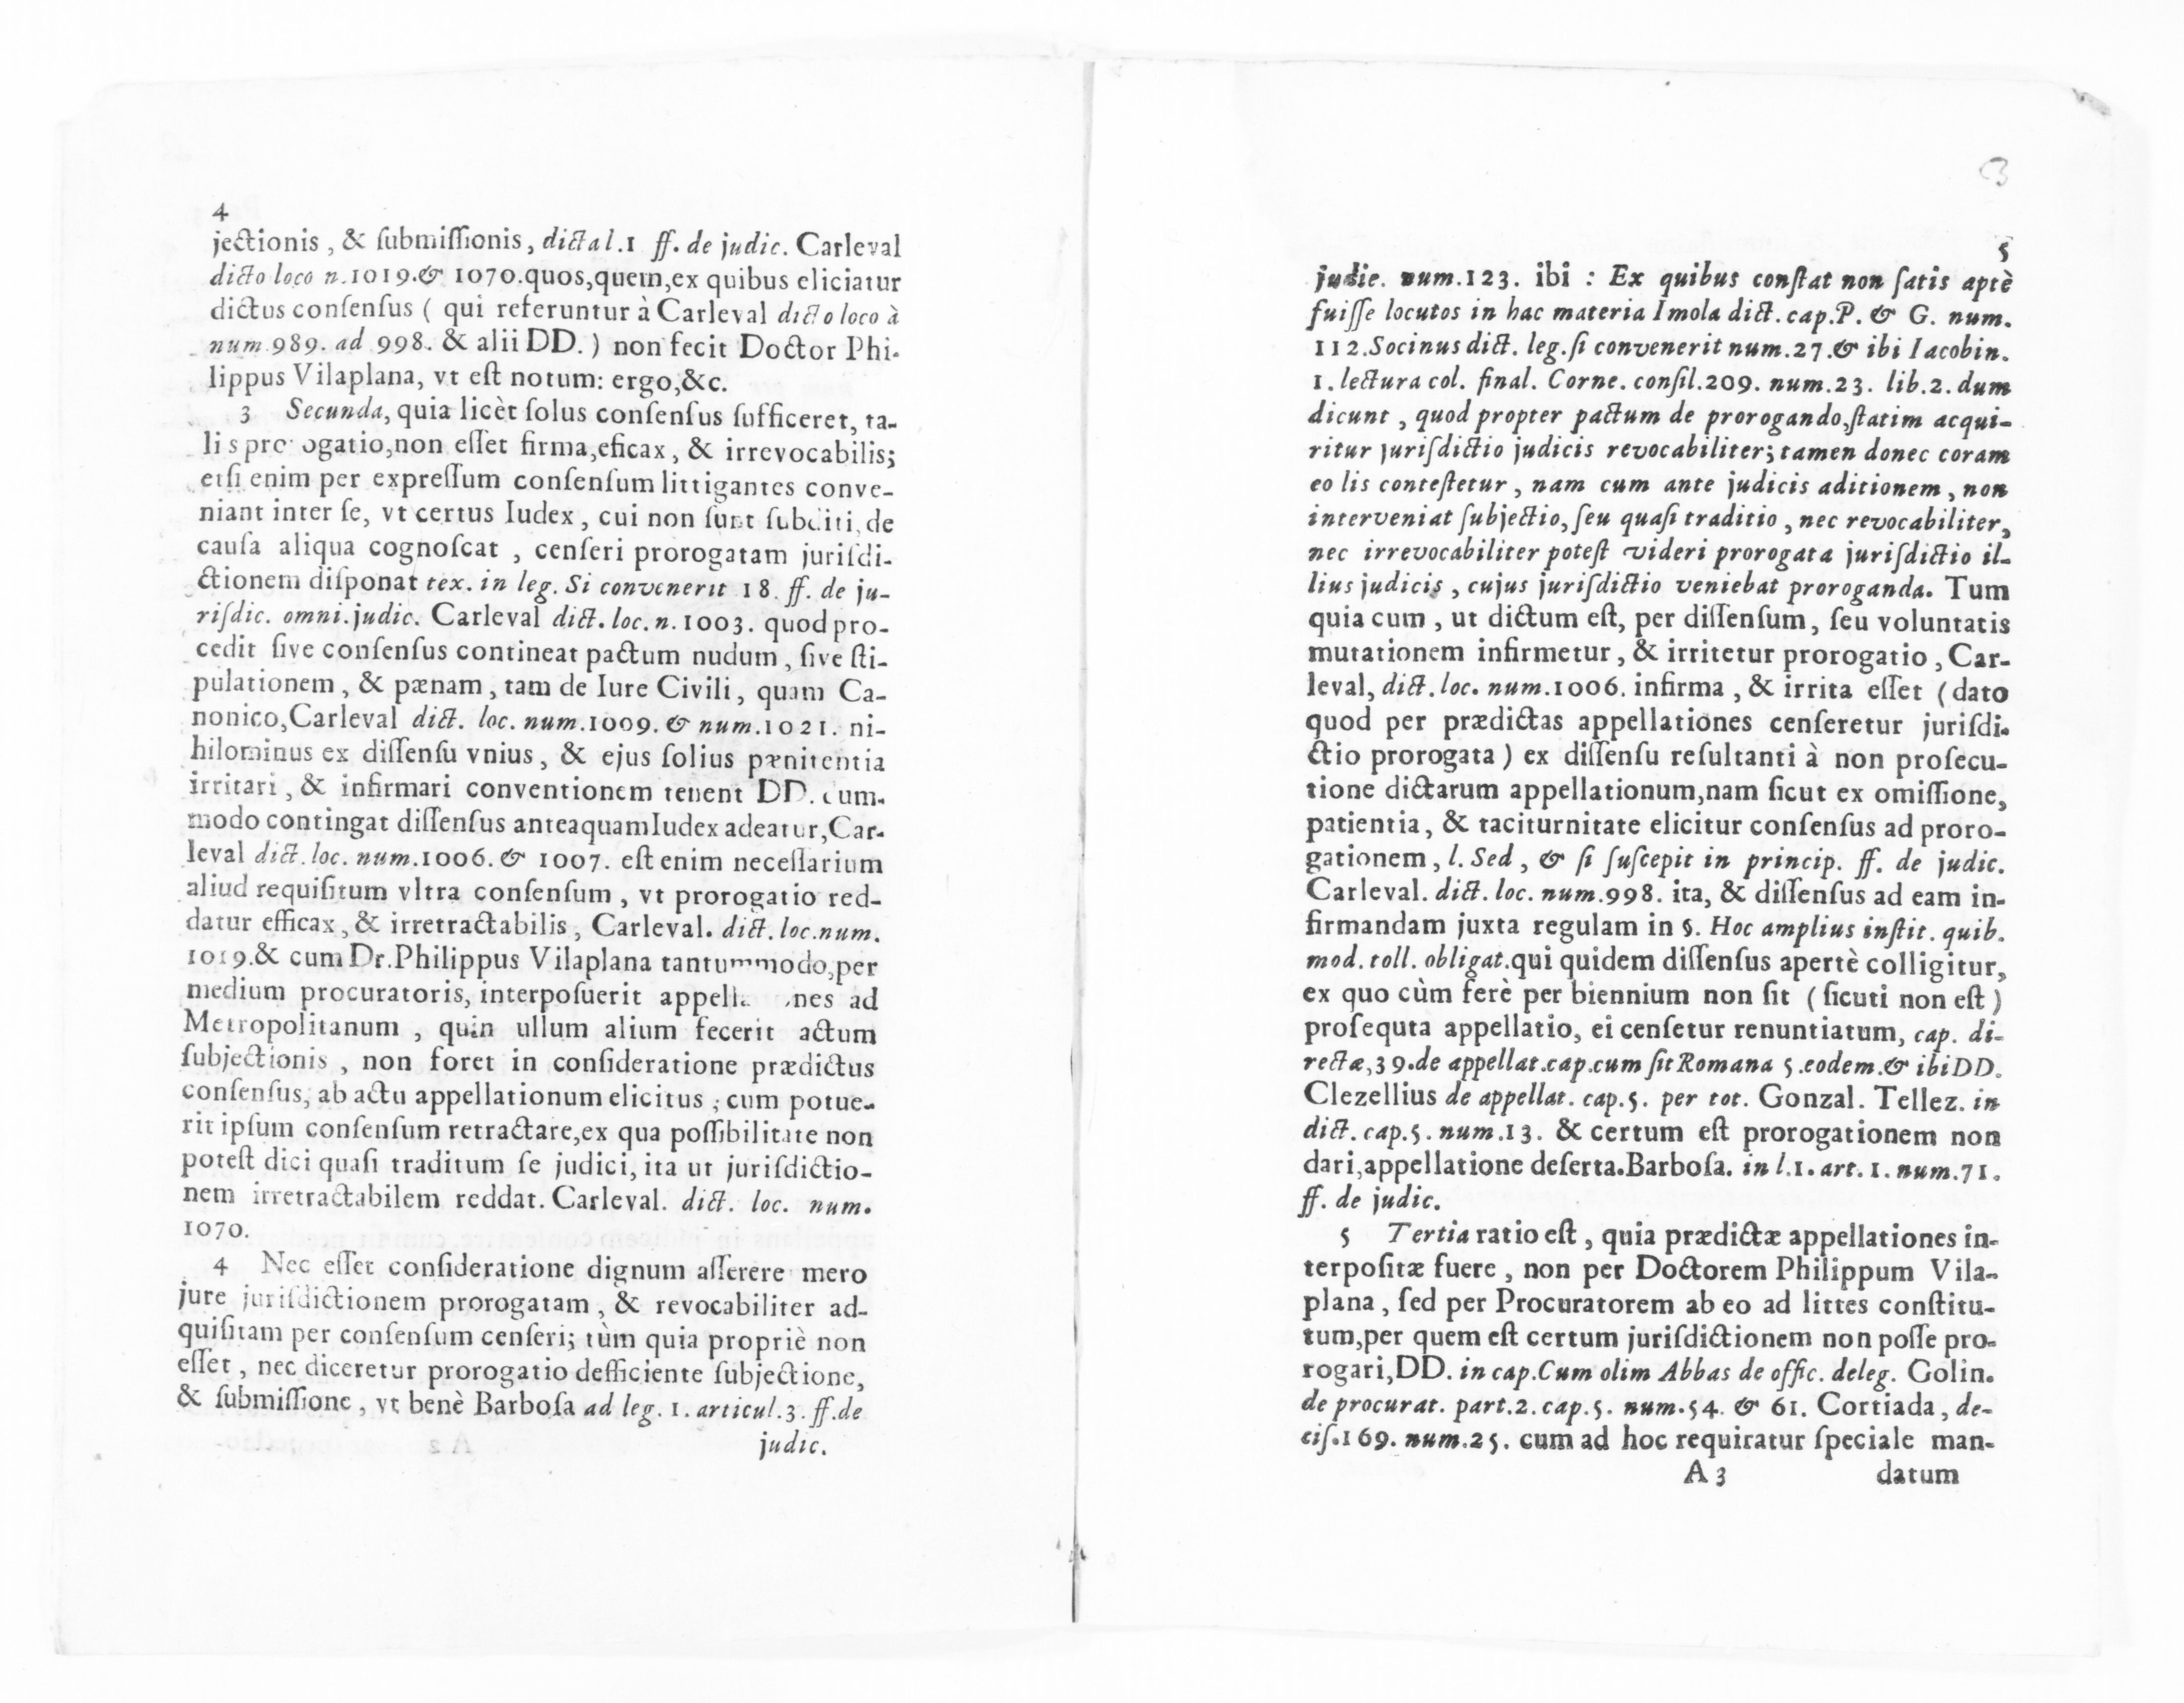 4
jectionis, & ſubmiſſionis, dicta l.1 ff. de judic. Carleval
dicto loco n.1019.& 1070.quos,quem,ex quibus eliciatur
dictus conſenſus ( qui referuntur à Carleval dicto loco à
num.989. ad 998. & alii DD. ) non fecit Doctor Phi-
lippus Vilaplana, vt eſt notum: ergo,&c.
3 Secunda, quia licèt ſolus conſenſus ſufficeret, ta-
lis prorogatio,non eſſet firma,eficax, & irrevocabilis;
etſi enim per expreſſum conſenſum littigantes conve-
niant inter ſe, vt certus Iudex, cui non ſunt ſubditi, de
cauſa aliqua cognoſcat, cenſeri prorogatam juriſdi-
ctionem diſponat tex. in leg. Si convenerit 18. ff. de ju-
riſdic. omni.judic. Carleval dict. loc. n. 1003. quod pro-
cedit ſive conſenſus contineat pactum nudum, ſive ſti-
pulationem, & pænam, tam de Iure Civili, quam Ca-
nonico,Carleval dict. loc. num.1009. & num.1021. ni-
hilominus ex diſſenſu vnius, & ejus ſolius pænitentia
irritari, & infirmari conventionem tenent DD. cum-
modo contingat diſſenſus anteaquam Iudex adeatur,Car-
leval dict. loc. num.1006. & 1007. eſt enim neceſſarium
aliud requiſitum vltra conſenſum, vt prorogatio red-
datur efficax, & irretractabilis, Carleval. dict. loc.num.
1019.& cum Dr.Philippus Vilaplana tantummodo,per
medium procuratoris, interpoſuerit appellationes ad
Metropolitanum, quin ullum alium fecerit actum
ſubjectionis, non foret in conſideratione prædictus
conſenſus, ab actu appellationum elicitus; cum potue-
rit ipſum conſenſum retractare,ex qua poſſibilitate non
poteſt dici quaſi traditum ſe judici, ita ut juriſdictio-
nem irretractabilem reddat. Carleval. dict. loc. num.
1070.
4 Nec eſſet conſideratione dignum aſſerere mero
jure juriſdictionem prorogatam, & revocabiliter ad-
quiſitam per conſenſum cenſeri; tùm quia propriè non
eſſet, nec diceretur prorogatio defficiente ſubjectione,
& ſubmiſſione, vt benè Barboſa ad leg. 1. articul.3. ff.de
judic.
3
5
judic. num.123. ibi : Ex quibus conſtat non ſatis aptè
fuiſſe locutos in hac materia Imola dict. cap.P. & G. num.
112.Socinus dict. leg.ſi convenerit num.27.& ibi Iacobin.
1. lectura col. final. Corne. conſil.209. num.23. lib.2. dum
dicunt, quod propter pactum de prorogando,ſtatim acqui-
ritur juriſdictio judicis revocabiliter; tamen donec coram
eo lis conteſtetur, nam cum ante judicis aditionem, non
interveniat ſubjectio, ſeu quaſi traditio, nec revocabiliter,
nec irrevocabiliter poteſt videri prorogata juriſdictio il-
lius judicis, cujus juriſdictio veniebat proroganda. Tum
quia cum, ut dictum eſt, per diſſenſum, ſeu voluntatis
mutationem infirmetur, & irritetur prorogatio, Car-
leval, dict. loc. num.1006. infirma, & irrita eſſet (dato
quod per prædictas appellationes cenſeretur juriſdi-
ctio prorogata ) ex diſſenſu reſultanti à non proſecu-
tione dictarum appellationum,nam ſicut ex omiſſione,
patientia, & taciturnitate elicitur conſenſus ad proro-
gationem, l. Sed, & ſi ſuſcepit in princip. ff. de judic.
Carleval. dict. loc. num.998. ita, & diſſenſus ad eam in-
firmandam juxta regulam in §. Hoc amplius inſtit. quib.
mod. toll. obligat.qui quidem diſſenſus apertè colligitur,
ex quo cùm ferè per biennium non ſit ( ſicuti non eſt )
proſequta appellatio, ei cenſetur renuntiatum, cap. di-
rectæ,39.de appellat.cap.cum ſit Romana 5.eodem.& ibi DD.
Clezellius de appellat. cap.5. per tot. Gonzal. Tellez. in
dict. cap.5. num.13. & certum eſt prorogationem non
dari,appellatione deſerta.Barboſa. in l.1. art. 1. num.71.
ff. de judic.
5 Tertia ratio eſt, quia prædictæ appellationes in-
terpoſitæ fuere, non per Doctorem Philippum Vila-
plana, ſed per Procuratorem ab eo ad littes conſtitu-
tum,per quem eſt certum juriſdictionem non poſſe pro-
rogari,DD. in cap.Cum olim Abbas de offic. deleg. Golin.
de procurat. part.2. cap.5. num.54. & 61. Cortiada, de-
ciſ.169. num.25. cum ad hoc requiratur ſpeciale man-
A 3 datum